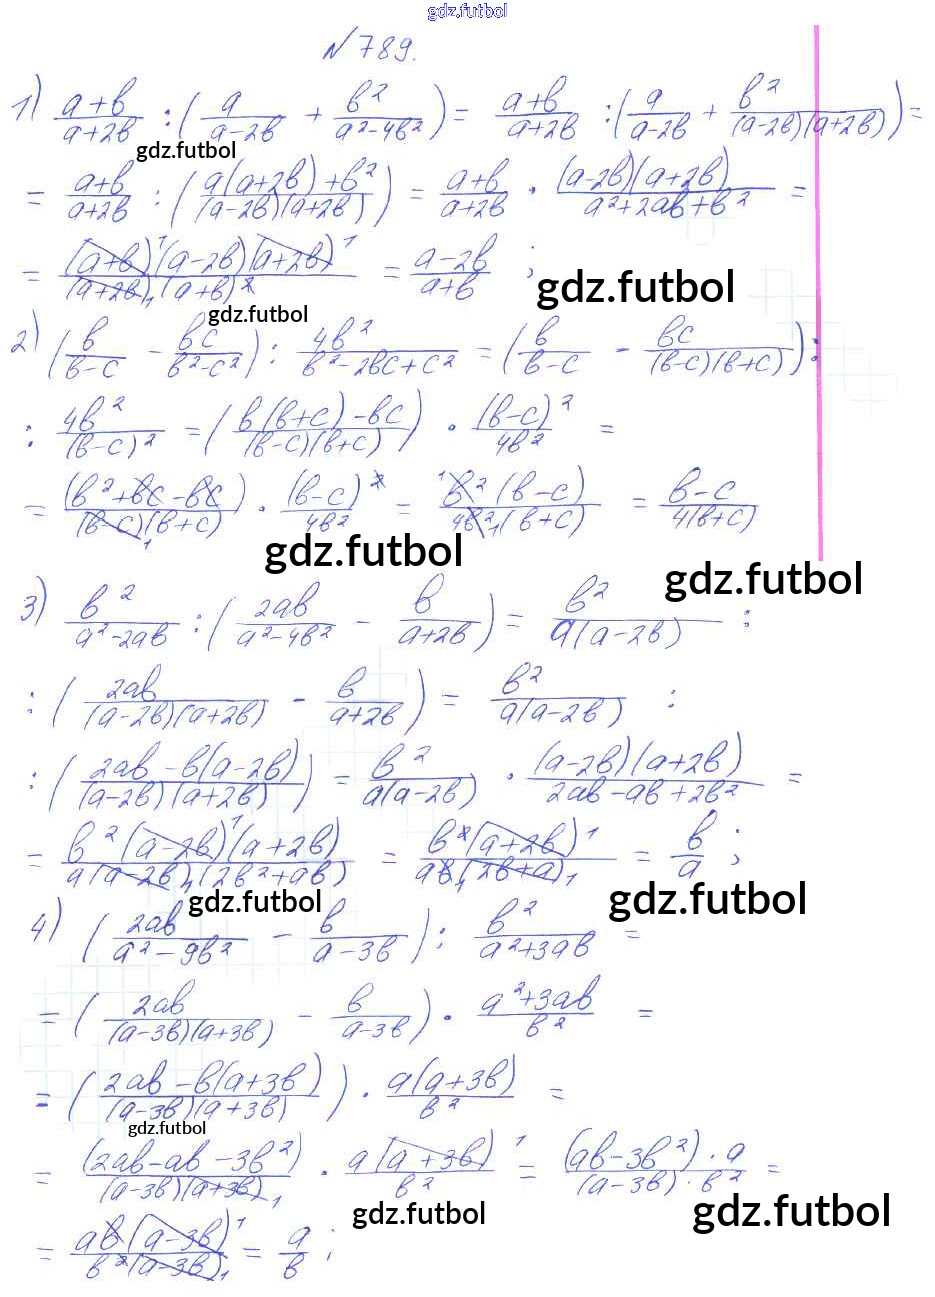 gdz.futbol
№789.
1) (a+b)/(a+2b) : (a/(a-2b) + b²/(a²-4b²)) = (a+b)/(a+2b) : (a/(a-2b) + b²/((a-2b)(a+2b))) =
gdz.futbol
= (a+b)/(a+2b) : ((a(a+2b)+b²)/((a-2b)(a+2b))) = (a+b)/(a+2b) · ((a-2b)(a+2b))/(a²+2ab+b²) =
= ((a+b)¹(a-2b)(a+2b)¹)/((a+2b)₁(a+b)²) = (a-2b)/(a+b) ;
gdz.futbol
gdz.futbol
2) (b/(b-c) - bc/(b²-c²)) : 4b²/(b²-2bc+c²) = (b/(b-c) - bc/((b-c)(b+c))) :
: 4b²/(b-c)² = ((b(b+c)-bc)/((b-c)(b+c))) · (b-c)²/4b² =
= (b²+bc-bc)/((b-c)₁(b+c)) · (b-c)²/4b² = (¹b²(b-c))/(4b²₁(b+c)) = (b-c)/(4(b+c))
gdz.futbol
gdz.futbol
3) b²/(a²-2ab) : (2ab/(a²-4b²) - b/(a+2b)) = b²/(a(a-2b)) :
: (2ab/((a-2b)(a+2b)) - b/(a+2b)) = b²/(a(a-2b)) :
: ((2ab-b(a-2b))/((a-2b)(a+2b))) = b²/(a(a-2b)) · ((a-2b)(a+2b))/(2ab-ab+2b²) =
= (b²(a-2b)¹(a+2b))/(a(a-2b)₁(2b²+ab)) = (b²(a+2b)¹)/(ab₁(2b+a)₁) = b/a ;
gdz.futbol
gdz.futbol
4) (2ab/(a²-9b²) - b/(a-3b)) : b²/(a²+3ab) =
= (2ab/((a-3b)(a+3b)) - b/(a-3b)) · (a²+3ab)/b² =
= ((2ab-b(a+3b))/((a-3b)(a+3b))) · (a(a+3b))/b² =
gdz.futbol
= (2ab-ab-3b²)/((a-3b)(a+3b)₁) · (a(a+3b)¹)/b² = ((ab-3b²)·a)/((a-3b)·b²) =
gdz.futbol
gdz.futbol
= (ab(a-3b)¹)/(b²(a-3b)₁) = a/b ;